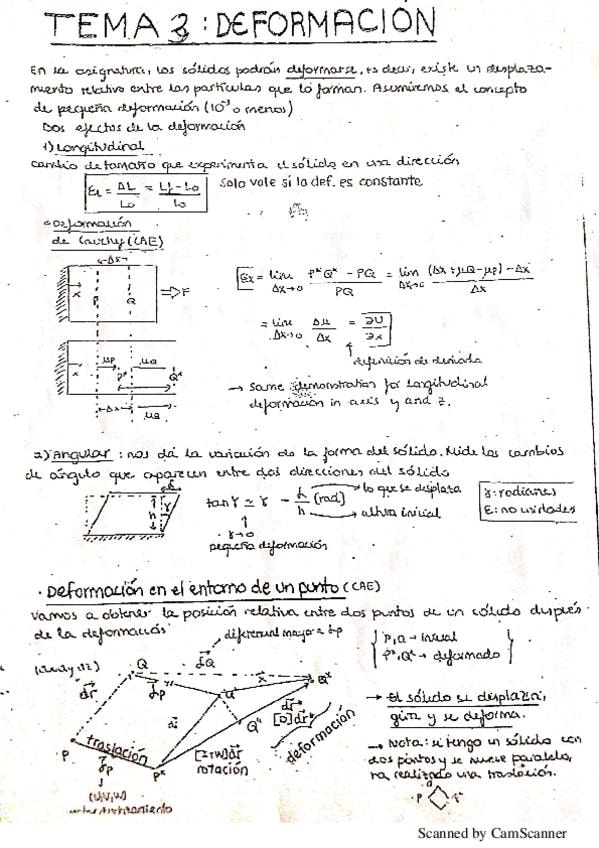 TEMA 3: DEFORMACIÓN
En la asignatura, los sólidos podrán deformarse, es decir, existe un desplaza-
miento relativo entre las partículas que lo forman. Asumiremos el concepto
de pequeña deformación (10⁻³ o menos)
Dos efectos de la deformación
1) Longitudinal
cambio de tamaño que experimenta el sólido en una dirección
εL = ΔL/Lo = Lf-Lo/Lo Solo vale si la def. es constante
Deformación
de Cauchy (CAE)
Δx
x P Q ⇒F
εx = lim Δx→0 P*Q* - PQ / PQ = lim Δx→0 (Δx+μQ-μP)-Δx / Δx
= lim Δx→0 Δμ/Δx = ∂U/∂x
definición de derivada
x μP P* μQ Q*
Δx μQ
→ Same demonstration for longitudinal
deformation in axis y and z.
2) Angular: nos da la variación de la forma del sólido. Mide los cambios
de ángulo que aparecen entre dos direcciones del sólido
h γ
tan γ ≃ γ (rad) → lo que se desplaza
h → altura inicial
γ→0
pequeña deformación
γ: radianes
E: no unidades
· Deformación en el entorno de un punto (CAE)
Vamos a obtener la posición relativa entre dos puntos de un sólido después
de la deformación
diferencial mayor a δp
P,Q → inicial
P*,Q* → deformado
Q δQ x Q*
dr δp
Q"
[D]dr
deformación
P traslación P*
δp
(U,V,W)
[rw]dr
rotación
→ el sólido se desplaza,
gira y se deforma.
→ Nota: si tengo un sólido con
dos puntos y se mueve paralela,
ha realizado una traslación.
Scanned by CamScanner